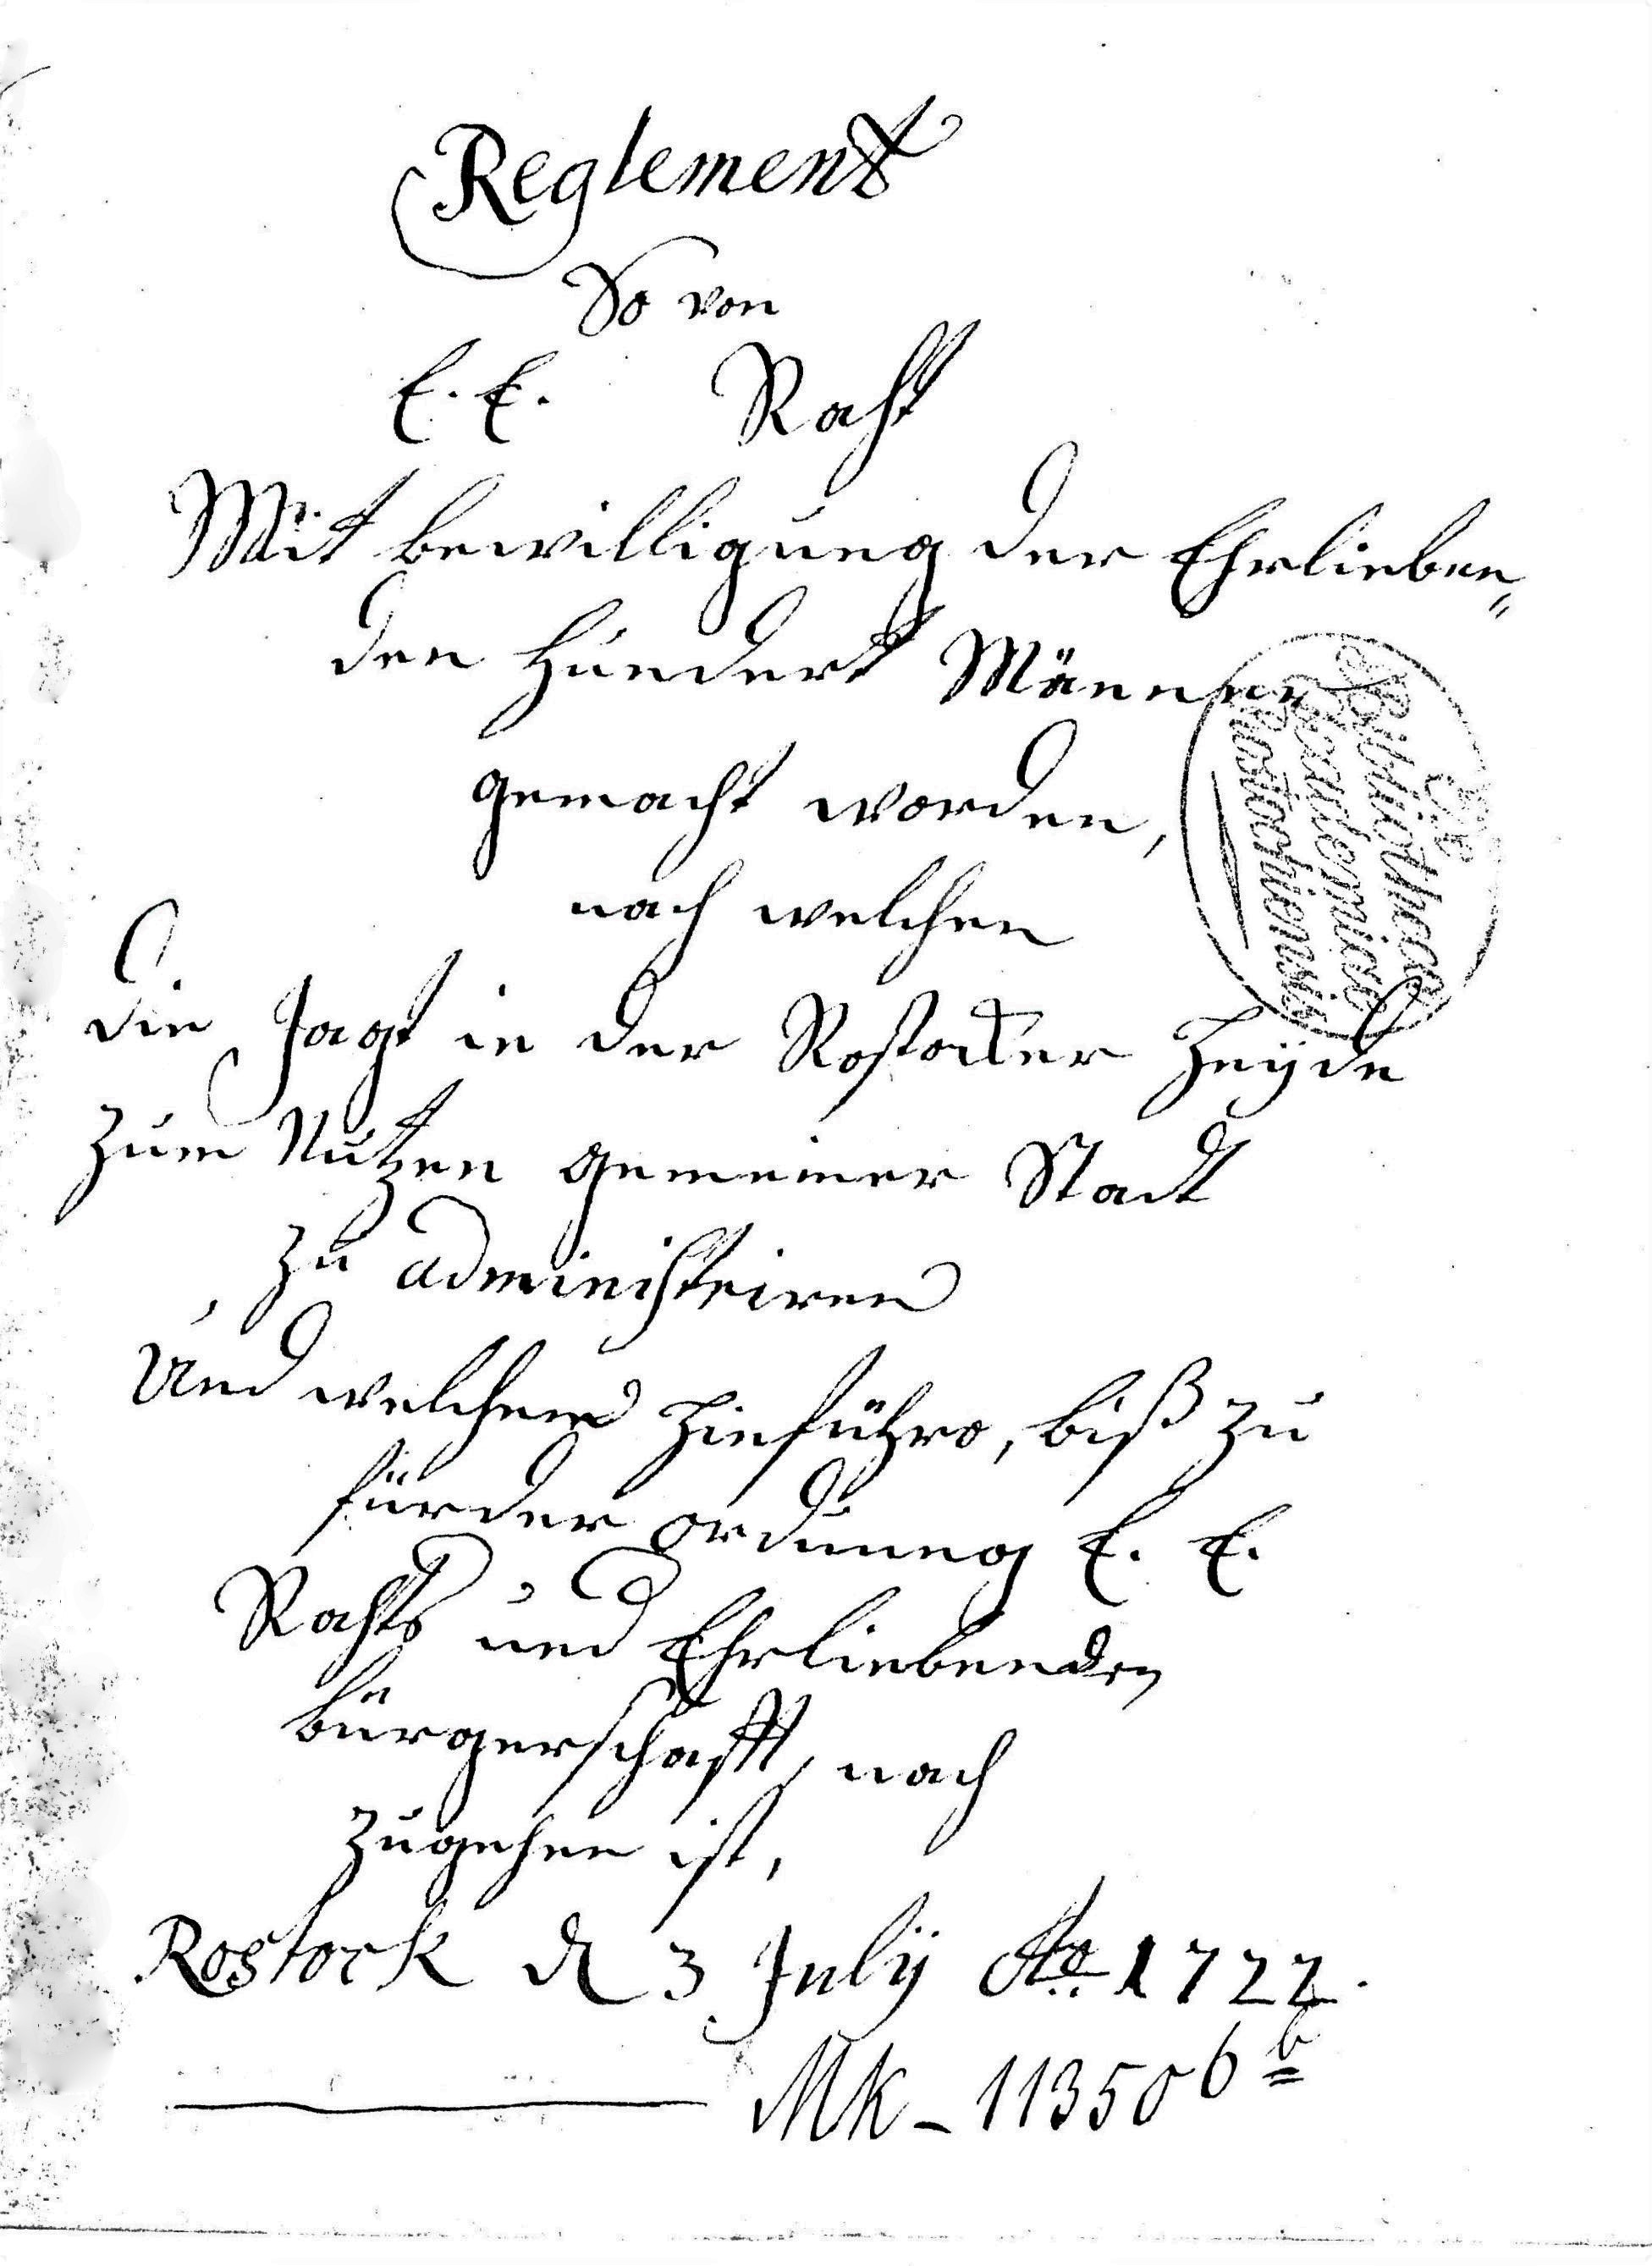 Reglement
So von
E. E. Raht
Mit bewilligung der Ehrlieben„
den Hundert Männer
gemacht worden,
nach welchen
die Jagt in der Rostocker Heyde
zum Nutzen gemeiner Stadt
zu administriren
Und welchem hinführo, biß zu
fürder ordnung E. E.
Rahts und Ehrliebenden
bürgerschafft, nach
zugehen ist,
Rostock d 3 July Ao. 1722.
MK - 11350 6 b
Bibliotheca
Academiae
Rostochiensis